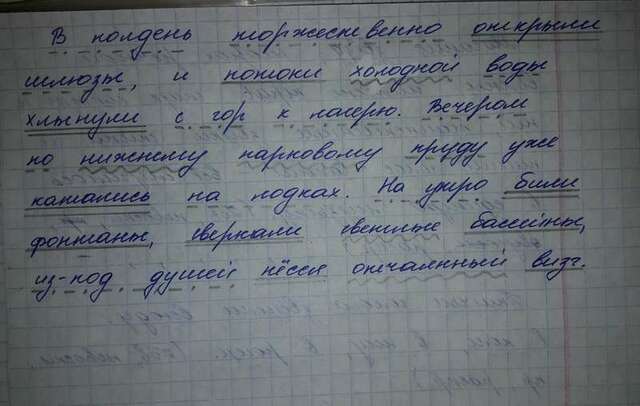 В полдень торжественно открыли
шлюзы, и потоки холодной воды
хлынули с гор к лагерю. Вечером
по нижнему парковому пруду уже
катались на лодках. На утро били
фонтаны, сверкали светлые бассейны,
из-под душей нёсся отчаянный визг.